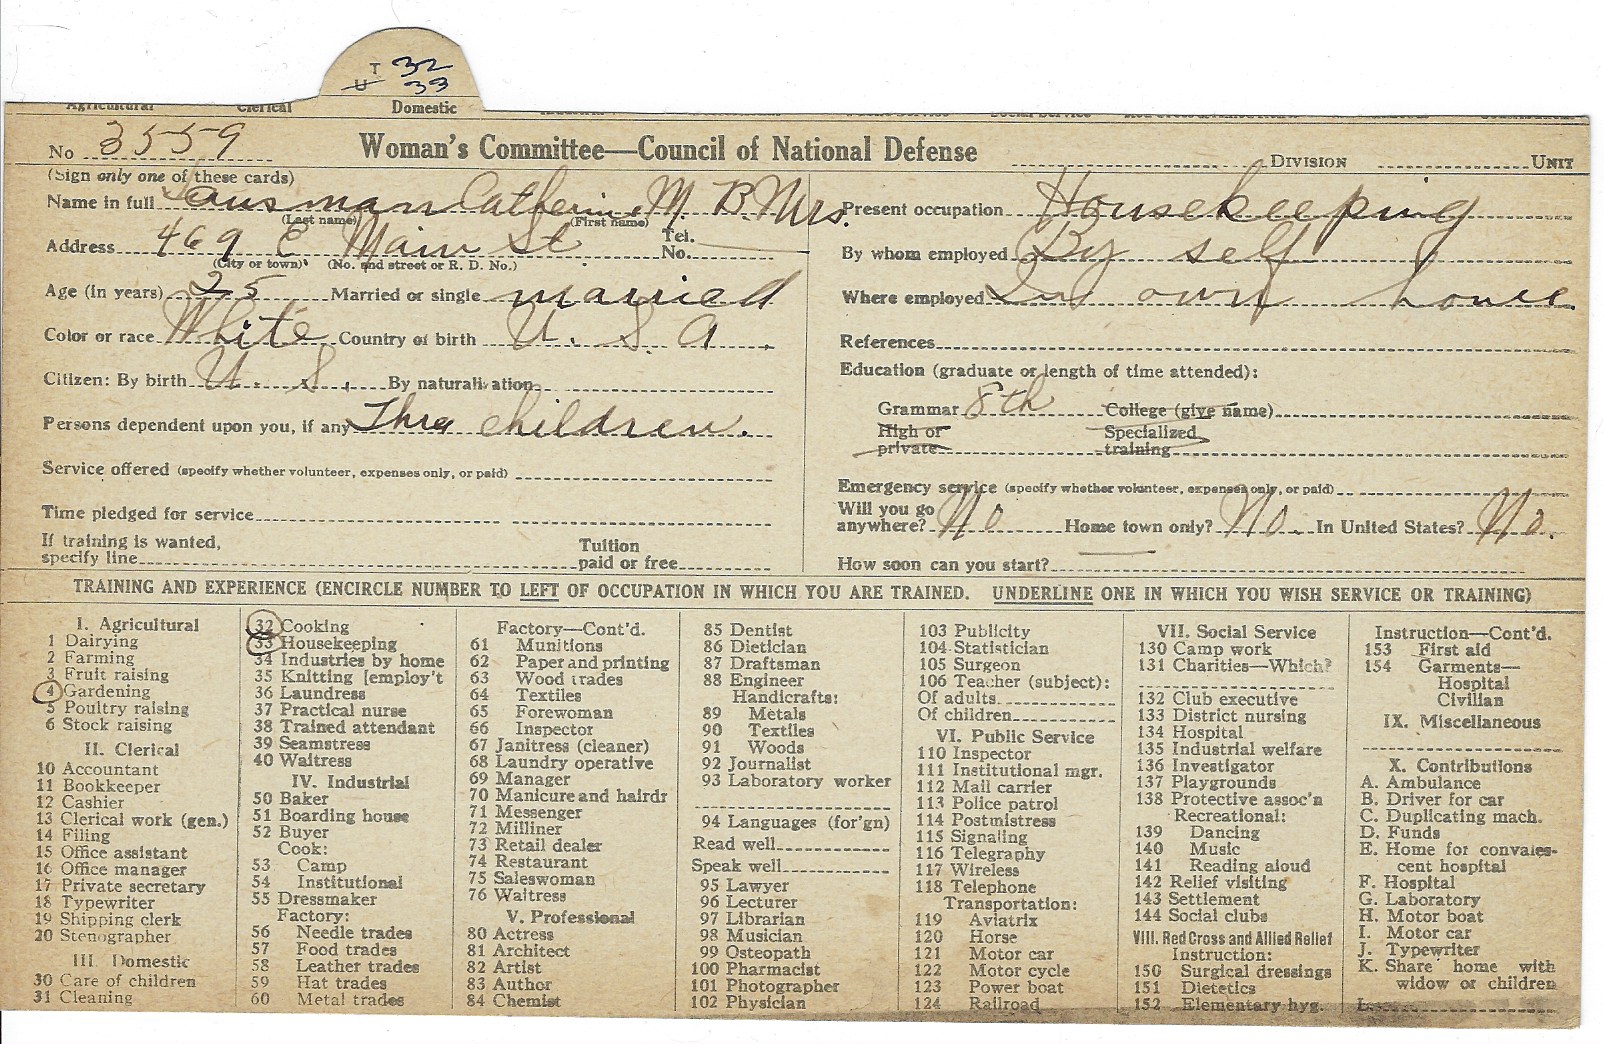 T 32
U 33
Agricultural Clerical Domestic
No 3559 Woman's Committee—Council of National Defense DIVISION UNIT
(Sign only one of these cards)
Name in full Catherine M. B. Mrs.
(Last name) (First name)
Address 469 E Main St Tel. No.
(City or town) (No. and street or R. D. No.)
Age (in years) 25 Married or single married
Color or race White Country of birth U. S. A.
Citizen: By birth U. S. By naturalization
Persons dependent upon you, if any Three children.
Service offered (specify whether volunteer, expenses only, or paid)
Time pledged for service
If training is wanted,
specify line Tuition paid or free
Present occupation Housekeeping
By whom employed By self
Where employed In own home.
References
Education (graduate or length of time attended):
Grammar 8th College (give name)
High or private Specialized training
Emergency service (specify whether volunteer, expenses only, or paid)
Will you go anywhere? No Home town only? No. In United States? No.
How soon can you start?
TRAINING AND EXPERIENCE (ENCIRCLE NUMBER TO LEFT OF OCCUPATION IN WHICH YOU ARE TRAINED. UNDERLINE ONE IN WHICH YOU WISH SERVICE OR TRAINING)
I. Agricultural
1 Dairying
2 Farming
3 Fruit raising
4 Gardening
5 Poultry raising
6 Stock raising
II. Clerical
10 Accountant
11 Bookkeeper
12 Cashier
13 Clerical work (gen.)
14 Filing
15 Office assistant
16 Office manager
17 Private secretary
18 Typewriter
19 Shipping clerk
20 Stenographer
III. Domestic
30 Care of children
31 Cleaning
32 Cooking
33 Housekeeping
34 Industries by home
35 Knitting [employ't
36 Laundress
37 Practical nurse
38 Trained attendant
39 Seamstress
40 Waitress
IV. Industrial
50 Baker
51 Boarding house
52 Buyer
Cook:
53 Camp
54 Institutional
55 Dressmaker
Factory:
56 Needle trades
57 Food trades
58 Leather trades
59 Hat trades
60 Metal trades
Factory—Cont'd.
61 Munitions
62 Paper and printing
63 Wood trades
64 Textiles
65 Forewoman
66 Inspector
67 Janitress (cleaner)
68 Laundry operative
69 Manager
70 Manicure and hairdr
71 Messenger
72 Milliner
73 Retail dealer
74 Restaurant
75 Saleswoman
76 Waitress
V. Professional
80 Actress
81 Architect
82 Artist
83 Author
84 Chemist
85 Dentist
86 Dietician
87 Draftsman
88 Engineer
Handicrafts:
89 Metals
90 Textiles
91 Woods
92 Journalist
93 Laboratory worker
94 Languages (for'gn)
Read well
Speak well
95 Lawyer
96 Lecturer
97 Librarian
98 Musician
99 Osteopath
100 Pharmacist
101 Photographer
102 Physician
103 Publicity
104 Statistician
105 Surgeon
106 Teacher (subject):
Of adults
Of children
VI. Public Service
110 Inspector
111 Institutional mgr.
112 Mail carrier
113 Police patrol
114 Postmistress
115 Signaling
116 Telegraphy
117 Wireless
118 Telephone
Transportation:
119 Aviatrix
120 Horse
121 Motor car
122 Motor cycle
123 Power boat
124 Railroad
VII. Social Service
130 Camp work
131 Charities—Which?
132 Club executive
133 District nursing
134 Hospital
135 Industrial welfare
136 Investigator
137 Playgrounds
138 Protective assoc'n
Recreational:
139 Dancing
140 Music
141 Reading aloud
142 Relief visiting
143 Settlement
144 Social clubs
VIII. Red Cross and Allied Relief
Instruction:
150 Surgical dressings
151 Dietetics
152 Elementary hyg.
Instruction—Cont'd.
153 First aid
154 Garments—
Hospital
Civilian
IX. Miscellaneous
X. Contributions
A. Ambulance
B. Driver for car
C. Duplicating mach.
D. Funds
E. Home for convales-
cent hospital
F. Hospital
G. Laboratory
H. Motor boat
I. Motor car
J. Typewriter
K. Share home with
widow or children
L.